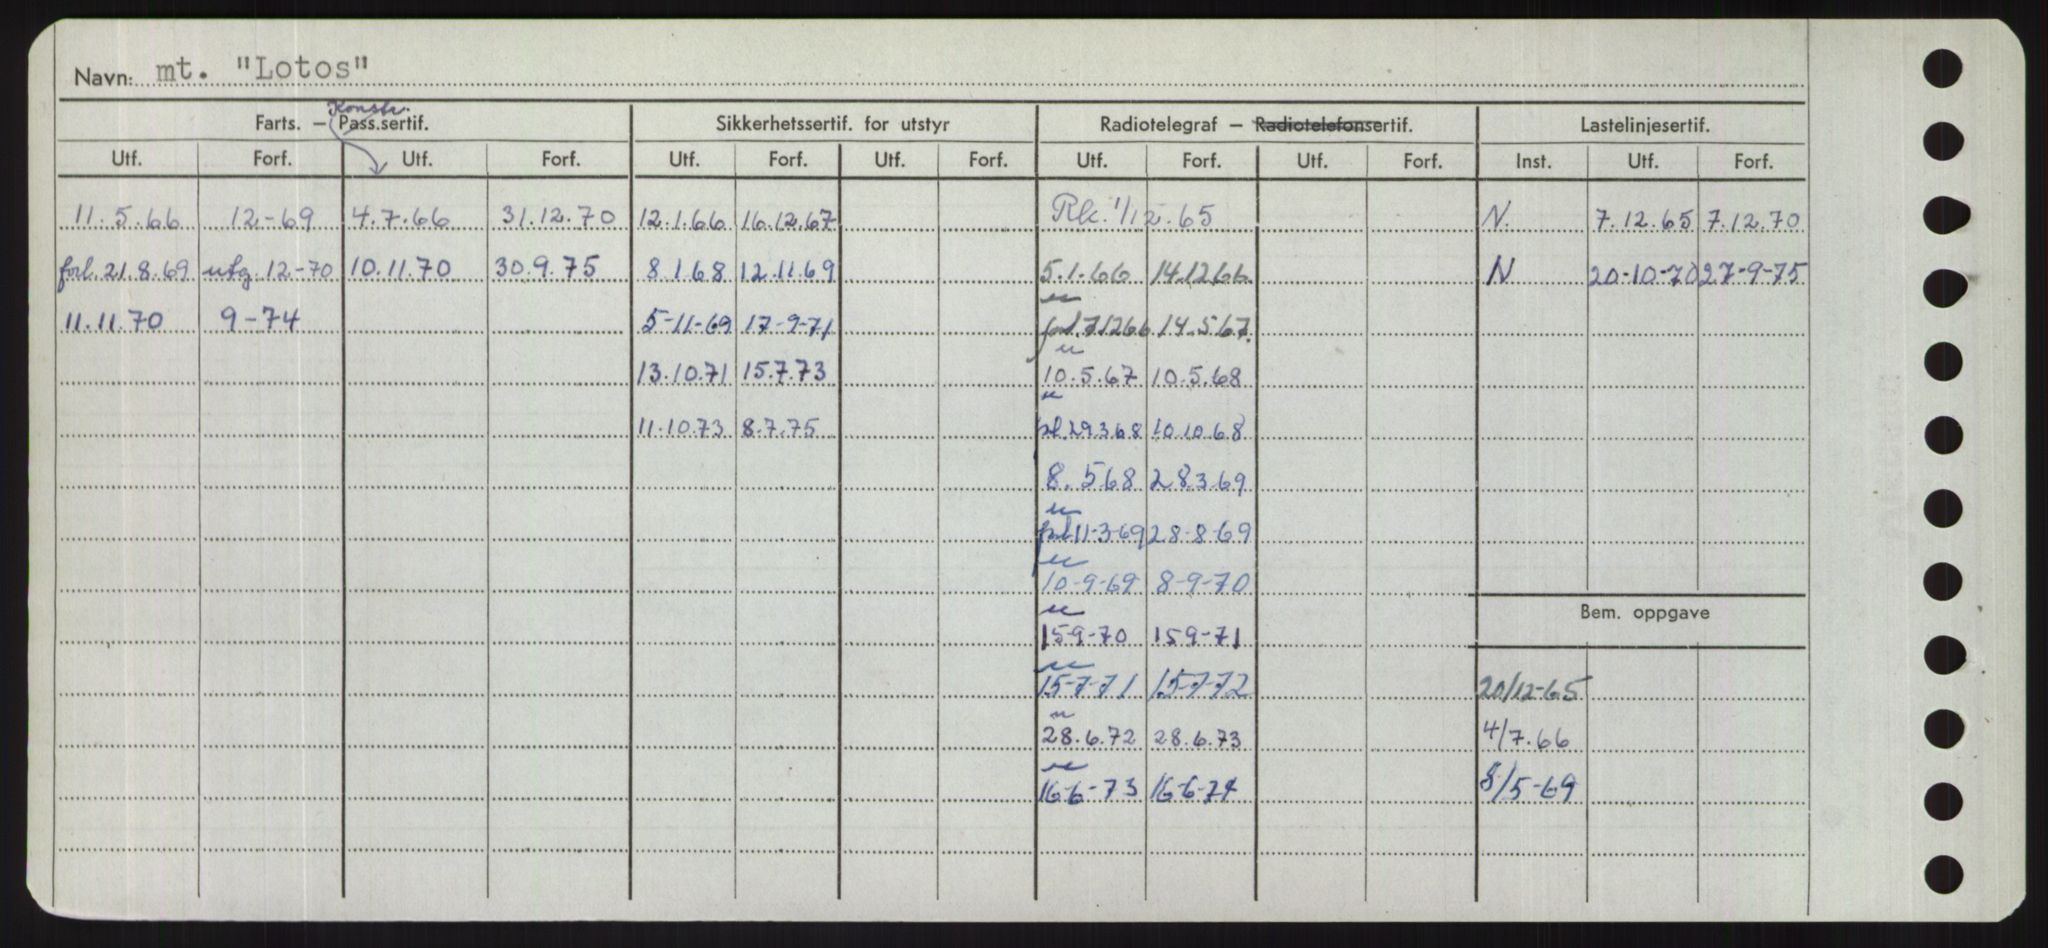 Navn: mt. "Lotos"
Konstr.
Farts. — Pass.sertif. Sikkerhetssertif. for utstyr Radiotelegraf — Radiotelefonsertif. Lastelinjesertif.
Utf. Forf. Utf. Forf. Utf. Forf. Utf. Forf. Utf. Forf. Utf. Forf. Inst. Utf. Forf.
11.5.66 12-69 4.7.66 31.12.70 12.1.66 16.12.67 Rk. 1/12.65 N. 7.12.65 7.12.70
forl. 21.8.69 utg. 12-70 10.11.70 30.9.75 8.1.68 12.11.69 5.1.66 14.12.66 N 20-10-70 27-9-75
11.11.70 9-74 5-11-69 17-9-71 forl. 7.12.66 14.5.67
13.10.71 15.7.73 10.5.67 10.5.68
11.10.73 8.7.75 fl. 29.3.68 10.10.68
8.5.68 28.3.69
forl 11-3-69 28-8-69
10-9-69 8-9-70
Bem. oppgave
15-9-70 15 9-71
15-7-71 15-7-72 20/12-65
28.6.72 28.6.73 4/7.66
16.6-73 16-6-74 8/5-69